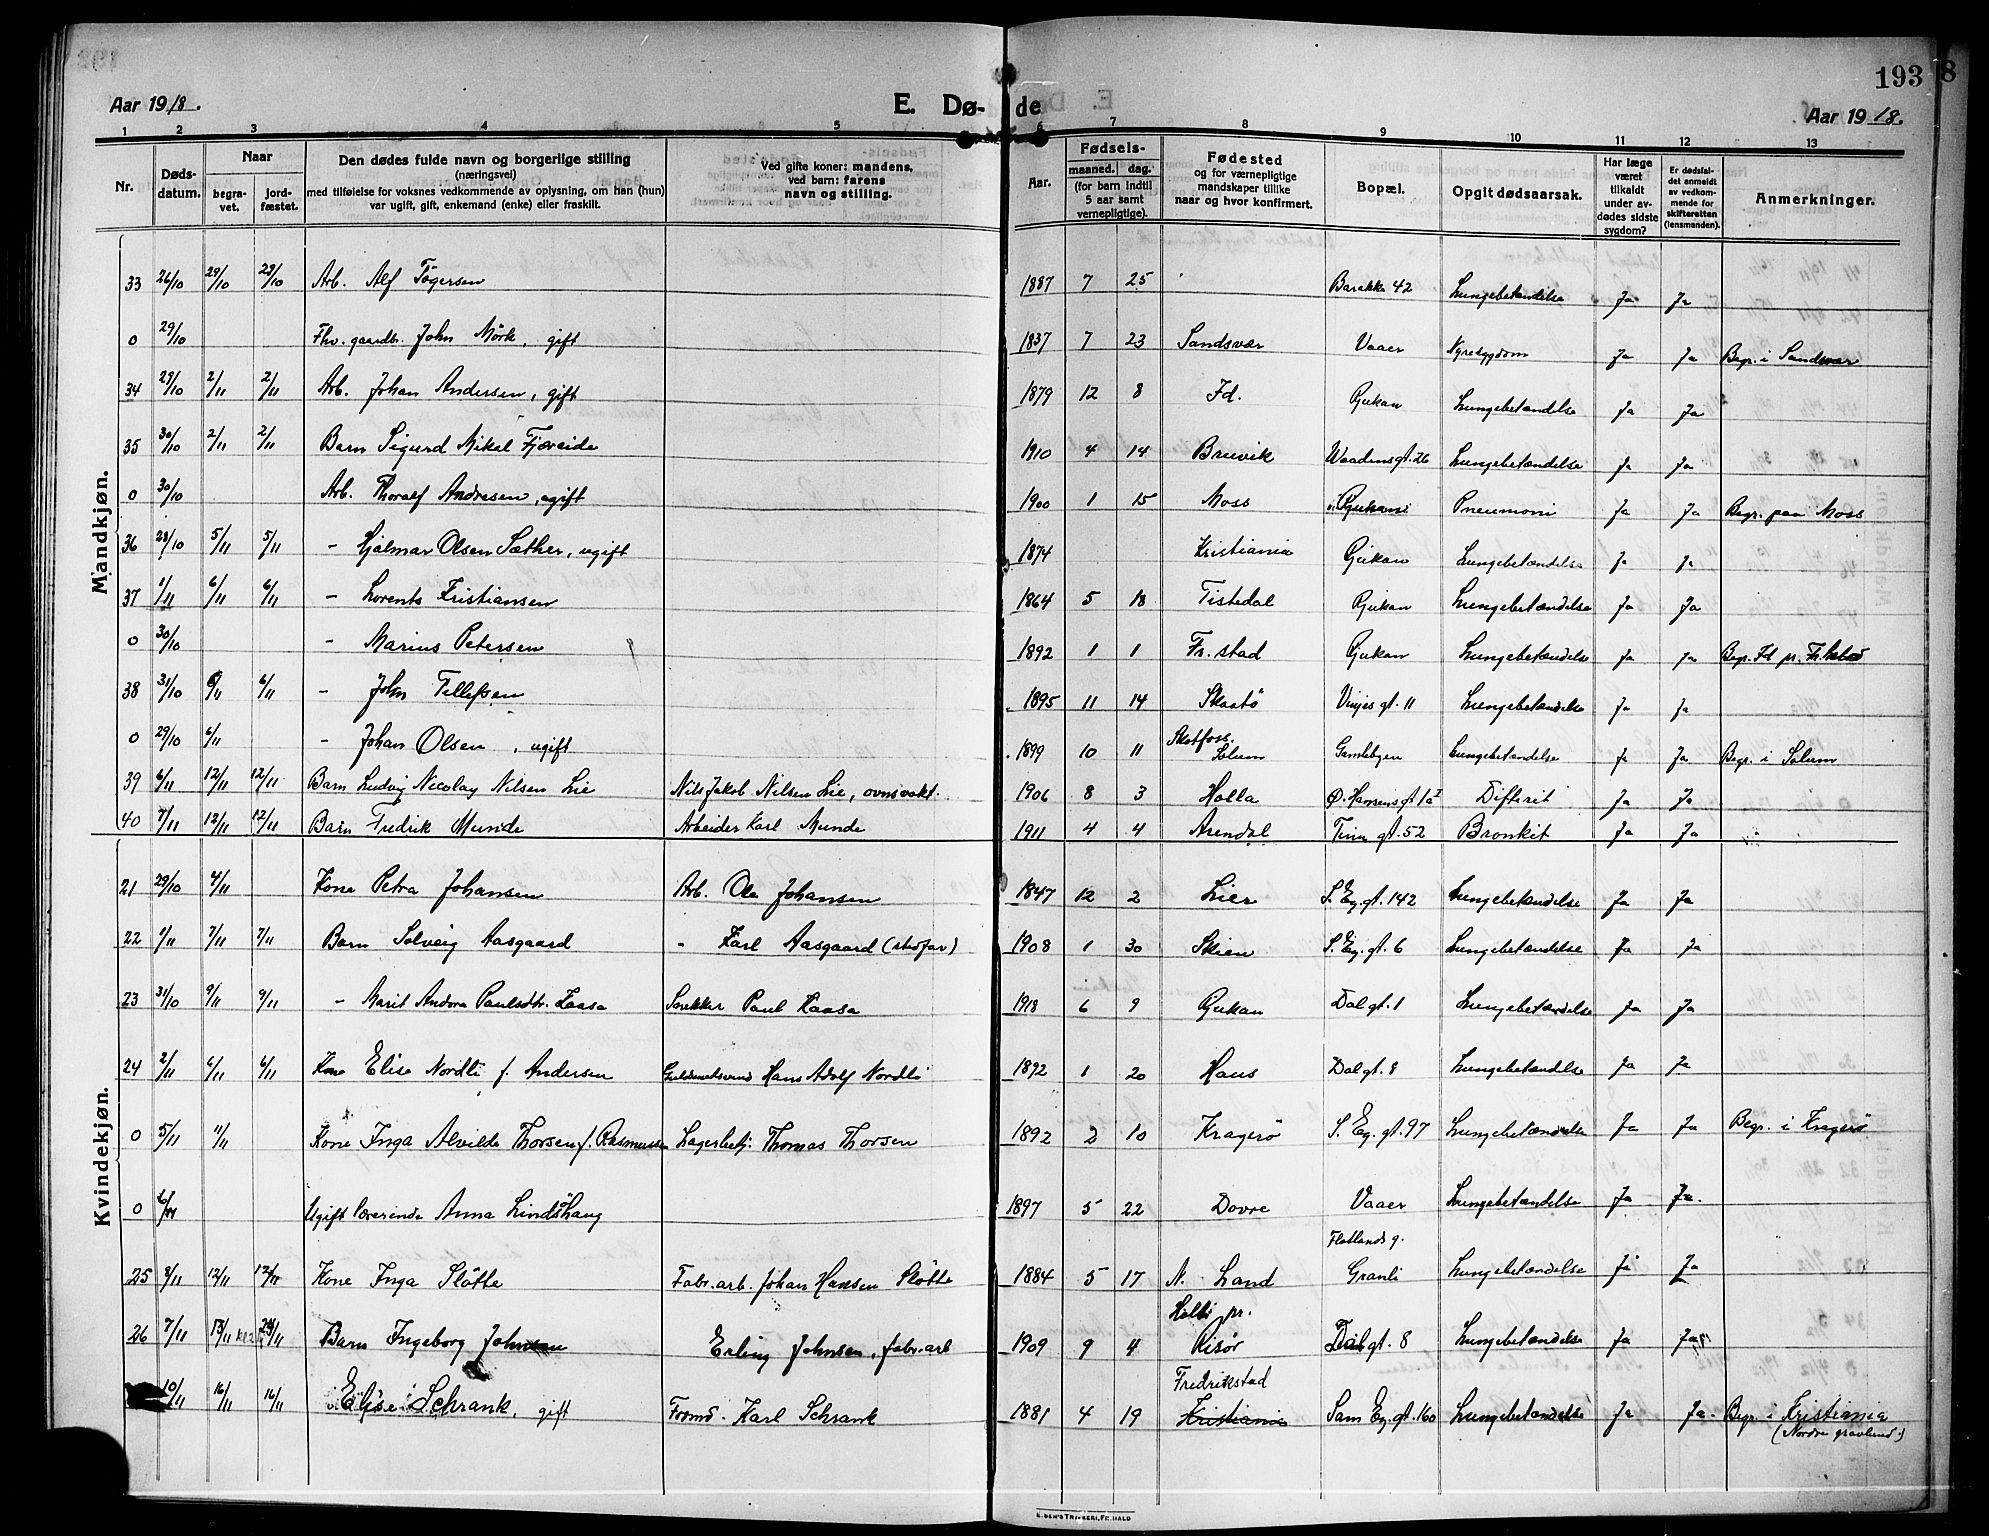 193
Aar 1918.
E. Dø-de
Aar 1918.
1 2 3 4 5 6 7 8 9 10 11 12 13
Nr. Dødsdatum. Naar begravet. jordfæstet.
Den dødes fulde navn og borgerlige stilling
(næringsvei)
med tilføielse for voksnes vedkommende av oplysning, om han (hun)
var ugift, gift, enkemand (enke) eller fraskilt.
Ved gifte koner: mandens,
ved barn: farens
navn og stilling.
Aar.
Fødsels-
maaned. dag.
(for barn indtil
5 aar samt
vernepligtige).
Fødested
og for værnepligtige
mandskaper tillike
naar og hvor konfirmert.
Bopæl.
Opgit dødsaarsak.
Har læge
været
tilkaldt
under av-
dødes sidste
sygdom?
Er dødsfal-
det anmeldt
av vedkom-
mende for
skifteretten
(lensmanden).
Anmerkninger.
Mandkjøn.
33 26/10 29/10 29/10 Arb. Alf Tögersen 1887 7 25 Barakke 42 Lungebetændelse Ja Ja
0 29/10 Fhv. gaardbr. John Mörk, gift 1837 7 23 Sandsvær Vaaer Nyresygdom Ja Ja Begr. i Sandsvær
34 29/10 2/11 2/11 Arb. Johan Andersen, gift 1879 12 8 Id. Rjukan Lungebetændelse Ja Ja
35 30/10 2/11 2/11 Barn Sigurd Mikal Fjæreide 1910 4 14 Bruvik Waadensgt. 26 Lungebetændelse Ja Ja
0 30/10 Arb. Thoralf Andresen, ugift 1900 1 15 Moss Rjukan Pneumoni Ja Ja Begr. paa Moss
36 28/10 5/11 5/11 - Hjalmar Olsen Sæther, ugift 1874 Kristiania Rjukan Lungebetændelse Ja Ja
37 1/11 6/11 6/11 - Lorents Kristiansen 1864 5 18 Tistedal Rjukan Lungebetændelse Ja Ja
0 30/10 - Marius Petersen 1892 1 1 Fr. stad Rjukan Lungebetændelse Ja Ja Begr.
38 31/10 6/11 6/11 - John Tellefsen 1895 11 14 Skaatö Vinjes gt. 11 Lungebetændelse Ja Ja
0 29/10 6/11 - Johan Olsen, ugift 1899 10 11 Skotfoss. Solum Gamlebyen Lungebetændelse Ja Ja Begr. i Solum
39 6/11 12/11 12/11 Barn Ludvig Nicolay Nilsen Lie Nils Jakob Nilsen Lie, ovnsvakt. 1906 8 3 Holla Ø. Hansensgt 1a Difterit Ja Ja
40 7/11 12/11 12/11 Barn Fredrik Munde Arbeider Karl Munde 1911 4 4 Arendal Tinn gt. 52 Bronkit Ja Ja
Kvindekjøn.
21 29/10 4/11 Kone Petra Johansen Arb. Ole Johansen 1847 12 2 Lier S. Eg. gt. 142 Lungebetændelse Ja Ja
22 1/11 7/11 7/11 Barn Solveig Aasgaard " Karl Aasgaard (stedfar) 1908 1 30 Skien S. Eg. gt. 6 Lungebetændelse Ja Ja
23 31/10 9/11 9/11 - Marit Andora Paulsdtr. Kaasa Snekker Paul Kaasa 1918 6 9 Rjukan Dal gt. 1 Lungebetændelse Ja Ja
24 2/11 6/11 6/11 Kone Elise Nordli f. Andersen Guldsmedsvend Hans Adolf Nordli 1892 1 20 Haus Dal gt. 8 Lungebetændelse Ja Ja
0 5/11 11/11 Kone Inga Alvilde Thorsen f. Rasmussen Lagerbetj. Thomas Thorsen 1892 2 10 Kragerö S. Eg. gt. 97 Lungebetændelse Ja Ja Begr. i Kragerö
0 Ugift lærerinde Anna Lindshaug 1897 5 22 Dovre Vaaer Lungebetændelse Ja Ja.
25 8/11 12/11 12/11 Kone Inga Slötte Fabr. arb. Johan Hansen Slötte 1884 5 17 N. Land Flatlands g. Granli Lungebetændelse Ja Ja
26 7/11 13/11 Barn Ingeborg Johnsen Erling Johnsen, fabr. arb 1909 9 4 pr. Risör Dal gt. 8 Lungebetændelse Ja Ja
10/11 16/11 16/11 Elise Schrank, gift Formd. Karl Schrank 1881 4 19 Fredrikstad Kristiania Sam Eg. gt. 160 Lungebetændelse Ja Ja. Begr. i Kristiania
(Nordre gravlund.)